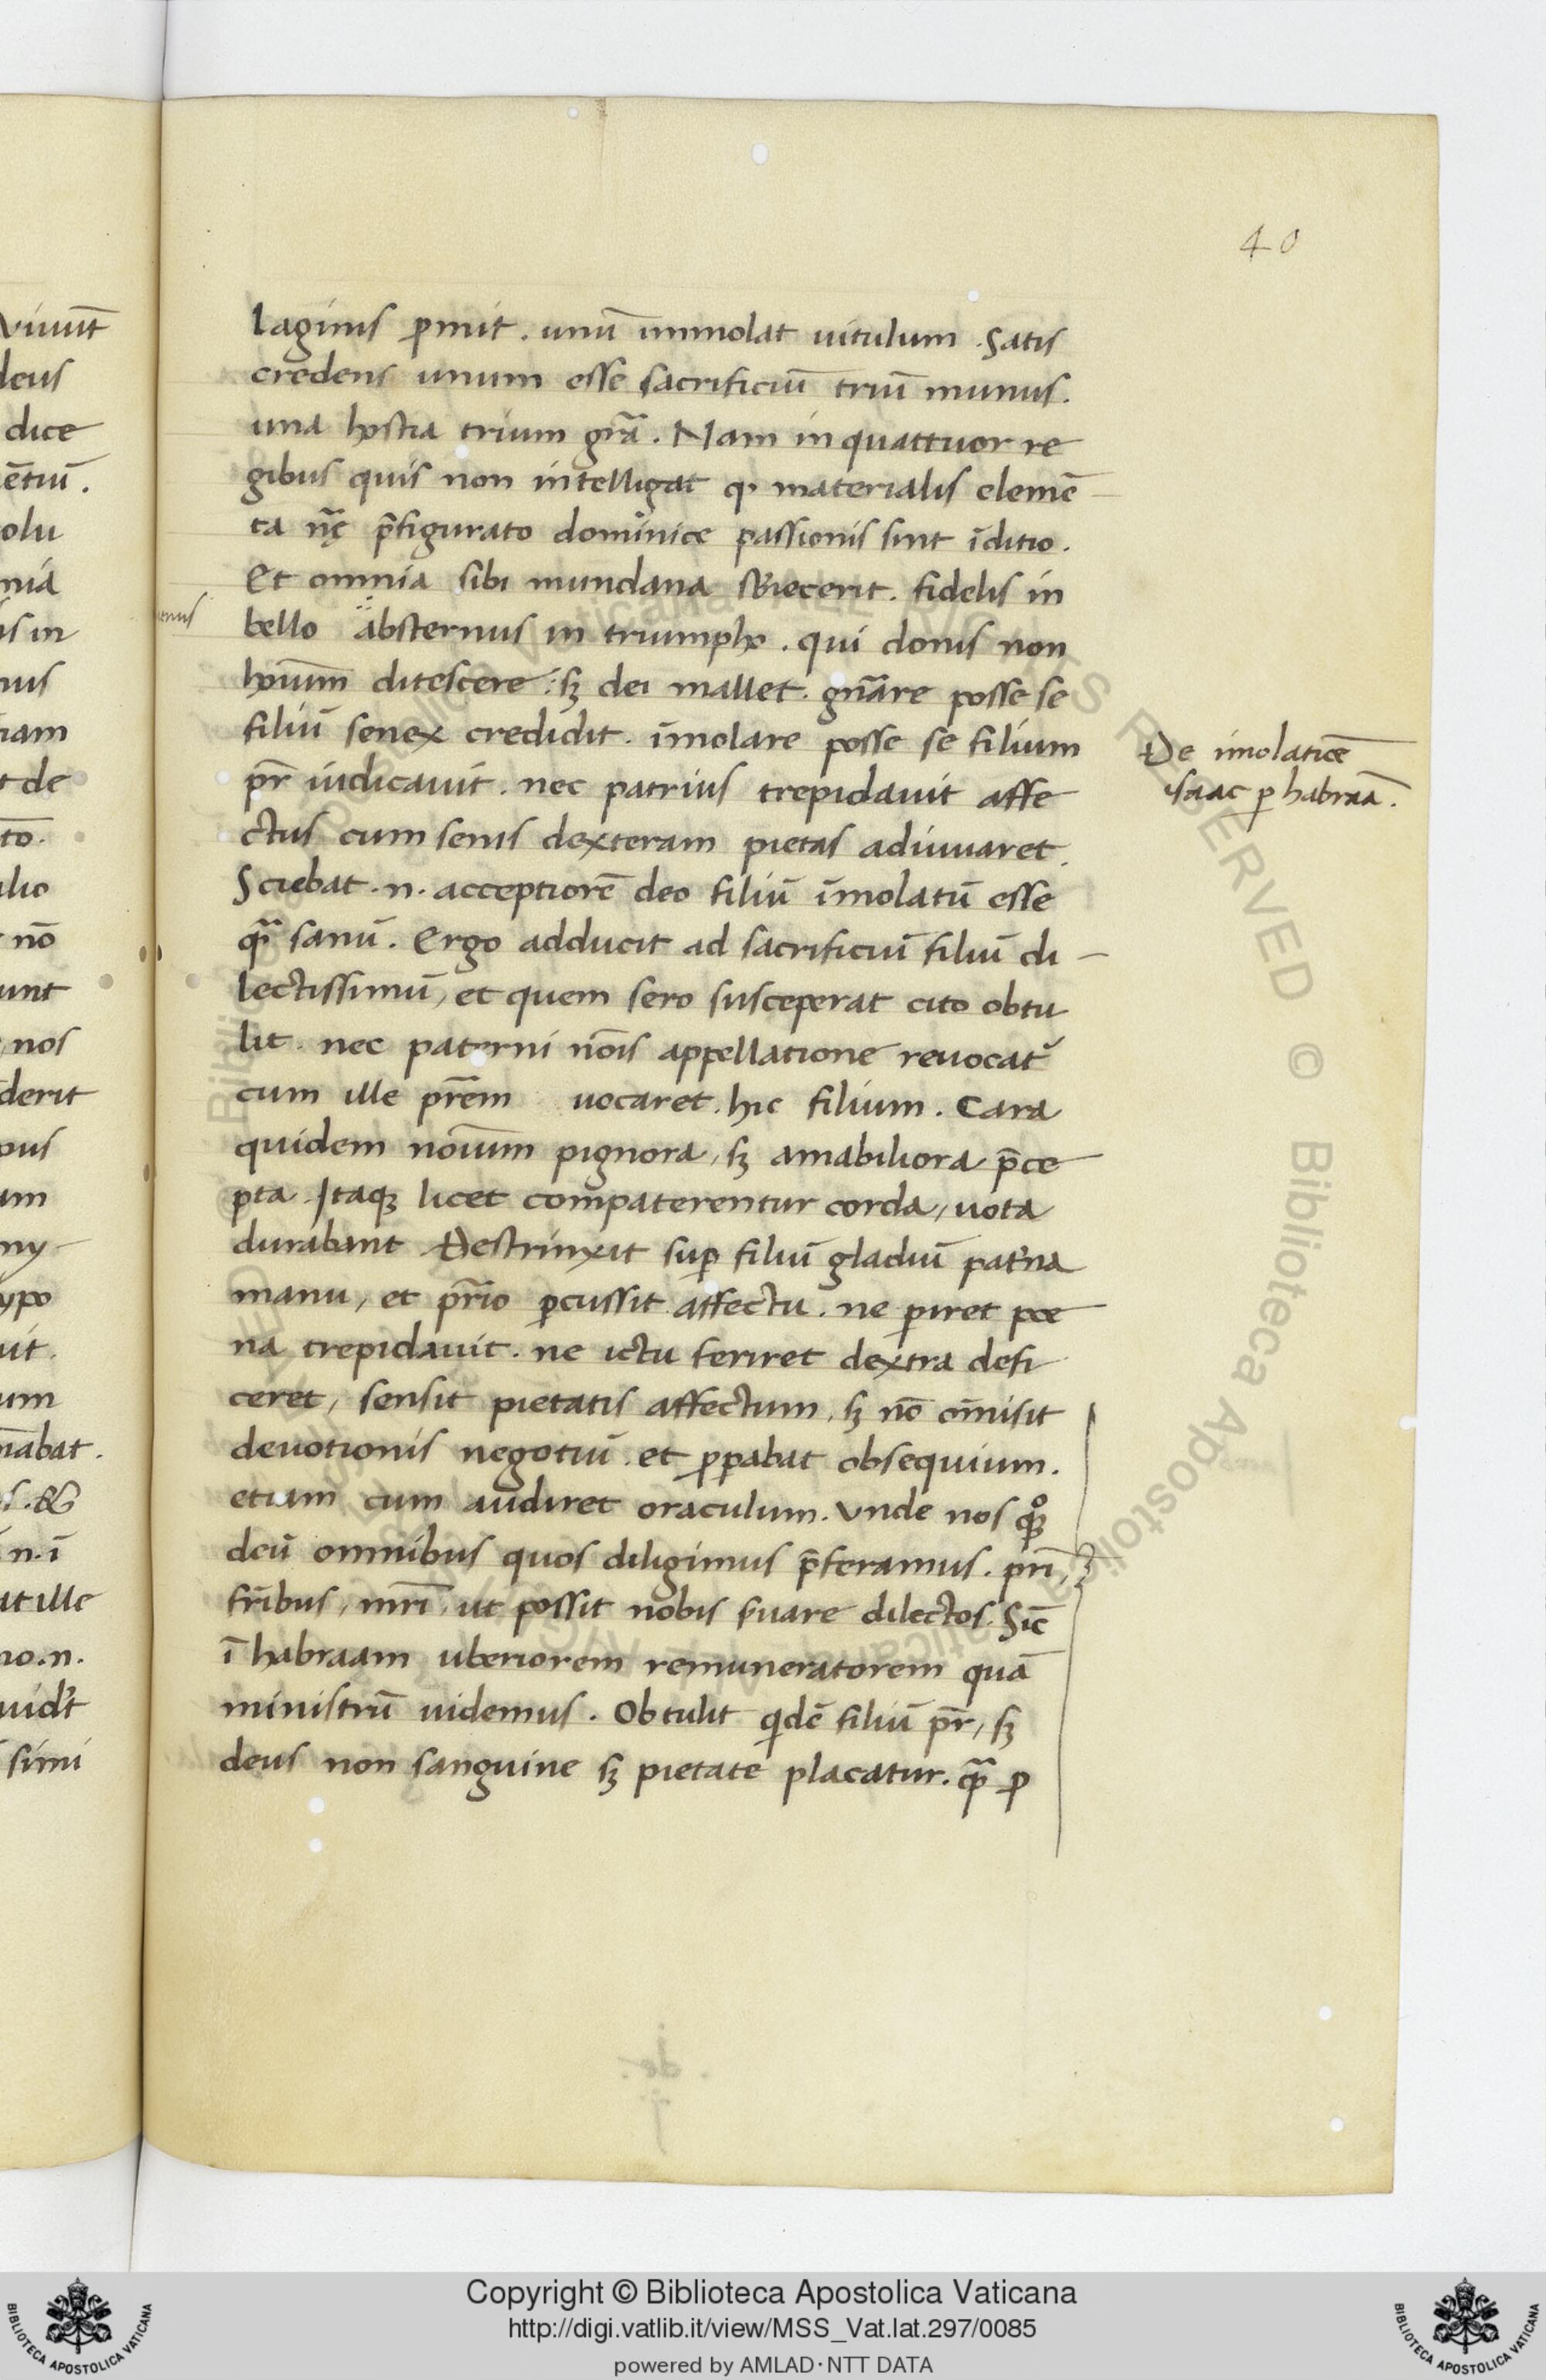 40
laginis ꝑmit . unū immolat uitulum . Satis
credens unum esse sacrificiū triū munus .
una hostia trium gr̄a . Nam in quattuor re
gibus quis non intelligat ꝙ materialis elemē
ta nr̄ę p̄figurato dominice passionis sint īditio .
Et omnia sibi mundana sb̓iecerit . fidelis in
bello absternus in triumpho . qui donis non
hoīum ditescere : sꝫ dei mallet . gn̄are posse se
filiū senex credidit . īmolare posse se filium
pr̄ iudicauit . nec patrius trepidauit affe
ctus cum senis dexteram pietas adiuuaret .
Sciebat .n. acceptiorē deo filiū īmolatū esse
qᷓ sanū . Ergo adducit ad sacrificiū filiū di
lectissimū, et quem sero susceperat cito obtu
lit . nec paterni nōis appellatione reuocat᷑
cum ille pr̄em uocaret . hic filium . Cara
quidem noīum pignora, sꝫ amabiliora p̄ce
pta . Itaqꝫ licet compaterentur corda, uota
durabant Destrinxit suꝑ filiū gladiū pat̓na
manu, et pr̄io ꝑcussit affectu . ne ꝑiret poe
na trepidauit . ne ictu feriret dextra defi
ceret, sensit pietatis affectum, sꝫ nō om̄isit
deuotionis negotiū . et ꝓꝑabat obsequium .
etiam cum audiret oraculum . Vnde nos qͦꝫ
deū omnibus quos diligimus p̄feramus . pr̄i,
fr̄ibus, mr̄i, ut possit nobis s̓uare dilectos . Sic̄
ī habraam uberiorem remuneratorem quā
ministrū uidemus . Obtulit qͥdē filiū pr̄, sꝫ
deus non sanguine sꝫ pietate placatur . qᷓ ꝓ
De imolatiōe
isaac ꝑ habraā .
Copyright © Biblioteca Apostolica Vaticana
http://digi.vatlib.it/view/MSS_Vat.lat.297/0085
powered by AMLAD·NTT DATA
BIBLIOTECA APOSTOLICA VATICANA
BIBLIOTECA APOSTOLICA VATICANA